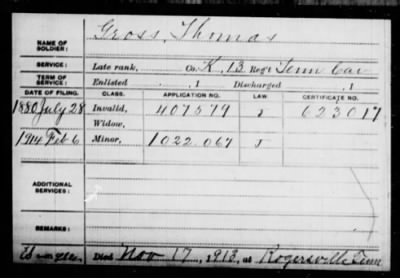 NAME OF SOLDIER: Gross, Thomas
SERVICE: Late rank, Co. K, 13 Reg't Tenn Cav
TERM OF SERVICE: Enlisted , 1 Discharged , 1
DATE OF FILING. CLASS. APPLICATION NO. LAW. CERTIFICATE NO.
1880 July 28 Invalid, 407579 623017
Widow,
1914 Feb 6 Minor, 1022.067
ADDITIONAL SERVICES:
REMARKS:
Died Nov 17, 1913, at Rogersville Tenn